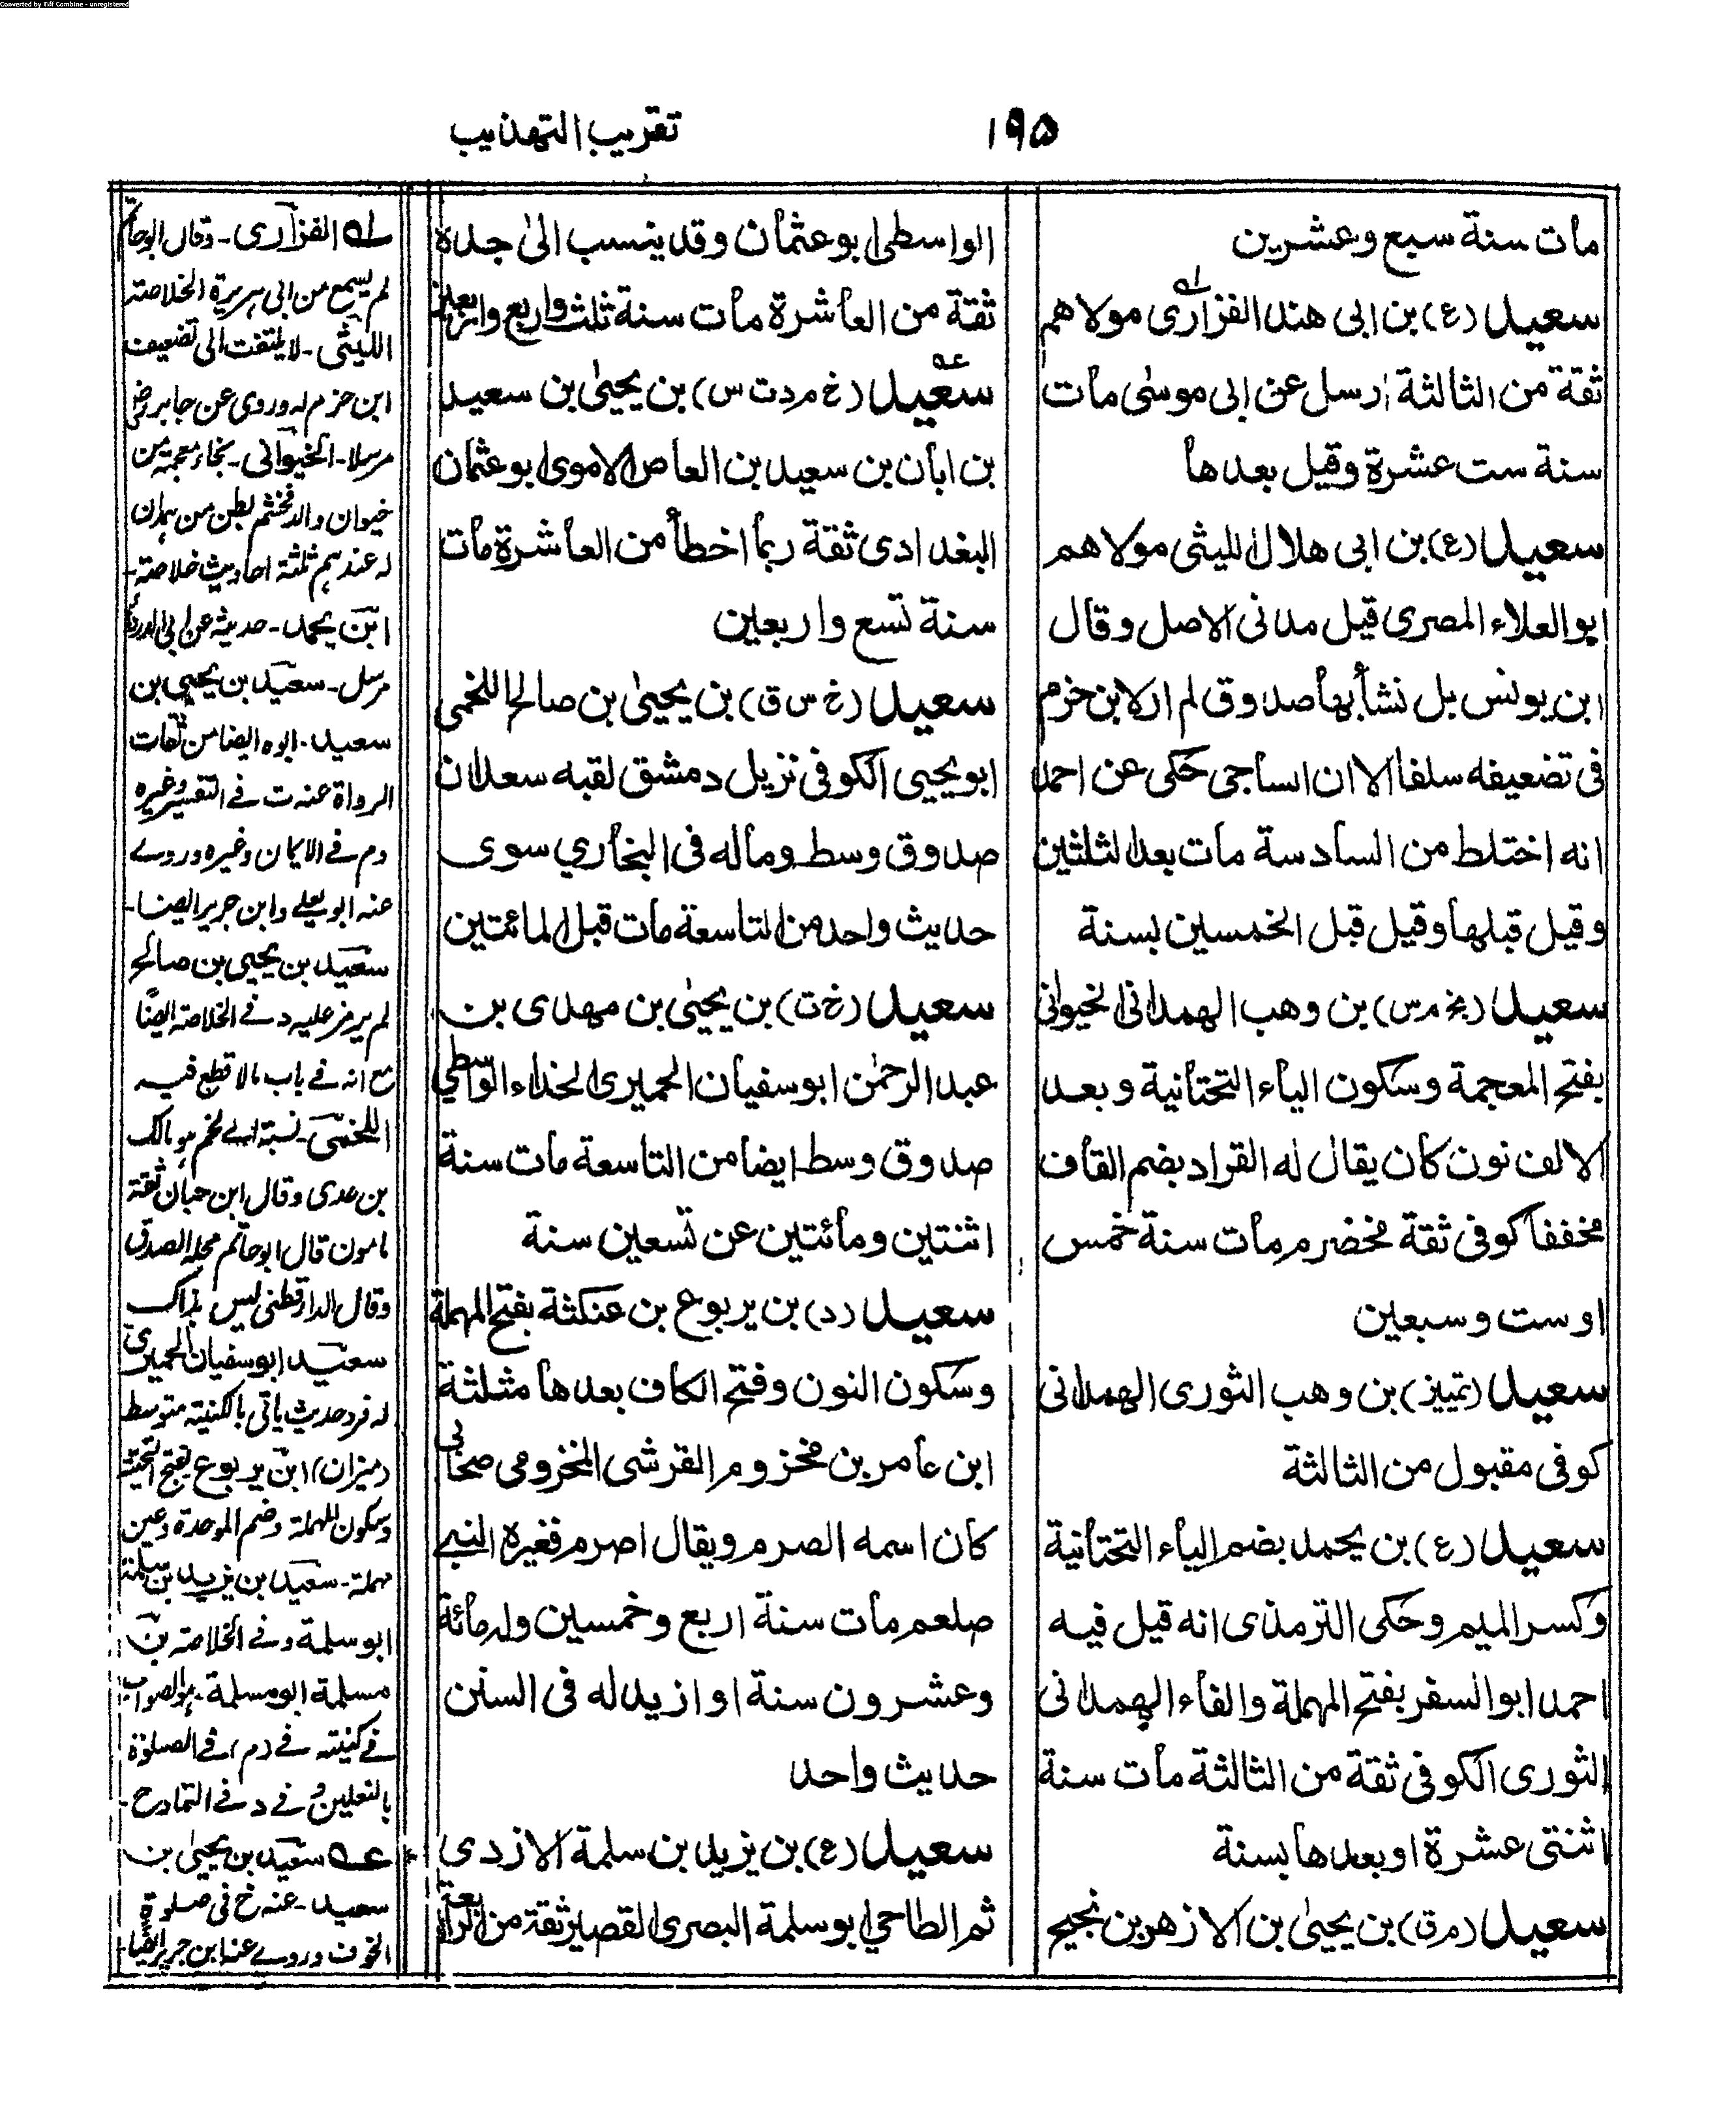 Converted by Tiff Combine - unregistered
۱۹۵
تقريب التهذيب
مات سنة سبع وعشرين
سعيد (ع) بن ابى هند الفزارى مولاهم
ثقة من الثالثة ارسل عن ابى موسى مات
سنة ست عشرة وقيل بعدها
سعيد (ع) بن ابى هلال الليثى مولاهم
ابو العلاء المصرى قيل مدنى الاصل وقال
ابن يونس بل نشأ بها صدوق لم ار لابن حزم
فى تضعيفه سلفا الا ان الساجى حكى عن احمد
انه اختلط من السادسة مات بعد الثلثين
وقيل قبلها وقيل قبل الخمسين بسنة
سعيد (بخ م س) بن وهب الهمدانى الخيوانى
بفتح المعجمة وسكون الياء التحتانية وبعد
الالف نون كان يقال له القراد بضم القاف
مخففا كوفى ثقة مخضرم مات سنة خمس
او ست وسبعين
سعيد (تمييز) بن وهب الثورى الهمدانى
كوفى مقبول من الثالثة
سعيد (ع) بن يحمد بضم الياء التحتانية
وكسر الميم وحكى الترمذى انه قيل فيه
احمد ابو السفر بفتح المهملة والفاء الهمدانى
الثورى الكوفى ثقة من الثالثة مات سنة
اثنتى عشرة او بعدها بسنة
سعيد (م ق) بن يحيىٰ بن الازهر بن نجيح
الواسطى ابو عثمان وقد ينسب الىٰ جده
ثقة من العاشرة مات سنة ثلث واربع واربعين
عه
سعيد (خ م د ت س) بن يحيىٰ بن سعيد
بن ابان بن سعيد بن العاص الاموى ابو عثمان
البغدادى ثقة ربما اخطأ من العاشرة مات
سنة تسع واربعين
سعيد (خ س ق) بن يحيىٰ بن صالح اللخمى
ابو يحيى الكوفى نزيل دمشق لقبه سعدان
صدوق وسط وماله فى البخاري سوى
حديث واحد من التاسعة مات قبل المائتين
سعيد (خ ت) بن يحيىٰ بن مهدى بن
عبد الرحمٰن ابو سفيان الحميرى الحذاء الواسطي
صدوق وسط ايضا من التاسعة مات سنة
اثنتين ومائتين عن تسعين سنة
سعيد (د) بن يربوع بن عنكثة بفتح المهملة
وسكون النون وفتح الكاف بعدها مثلثة
ابن عامر بن مخزوم القرشى المخزومى صحابي
كان اسمه الصرم ويقال اصرم فغيره النبے
صلعم مات سنة اربع وخمسين وله مائة
وعشرون سنة او ازيد له فى السنن
حديث واحد
سعيد (ع) بن يزيد بن سلمة الازدى
ثم الطاحي ابو سلمة البصرى القصير ثقة من الرابعة
له الفزارى - وقال ابو حاتم
لم يسمع من ابى ہريرة الخلاصة
الليثى - لا يلتفت الى تضعيف
ابن حزم له وروى عن جابر رض
مرسلا - الخيوانى - بخاء معجمة من
خيوان والد فخشم بطن من ہمدان
له عندہم ثلثة احاديث خلاصة -
ابن يحمد - حديثه عن ابى الدرداء
مرسل - سعيد بن يحيى بن
سعيد - ابوه ايضا من ثقات
الرواة عنه ت فے التفسير وغيره
وم فے الايمان وغيره وروے
عنه ابو يعلے وابن جرير ايضا -
سعيد بن يحيى بن صالح
لم يرمز عليه د فے الخلاصة ايضًا
مع انه فے باب مالا قطع فيه
اللخمى - نسبة الے لخم ہو مالك
بن عدى وقال ابن حبان ثقة
مامون قال ابو حاتم محله الصدق
وقال الدارقطنى ليس بذاك
سعيد ابو سفيان الحميرى
له فرد حديث ياتى بالكنية متوسط
(ميزان) ابن يربوع بفتح التحتية
وسكون المهملة وضم الموحدة وعين
مهملة - سعيد بن يزيد بن سلمة
ابو سلمة وفے الخلاصة بن
مسلمة ابو مسلمة - ہو الصواب
فے كنيته فے (م) فے الصلوٰة
بالنعلين وفے د فے التمادح -
عه سعيد بن يحيىٰ بن
سعيد - عنه خ فى صلوة
الخوف وروے عنه ابن جرير ايضًا -